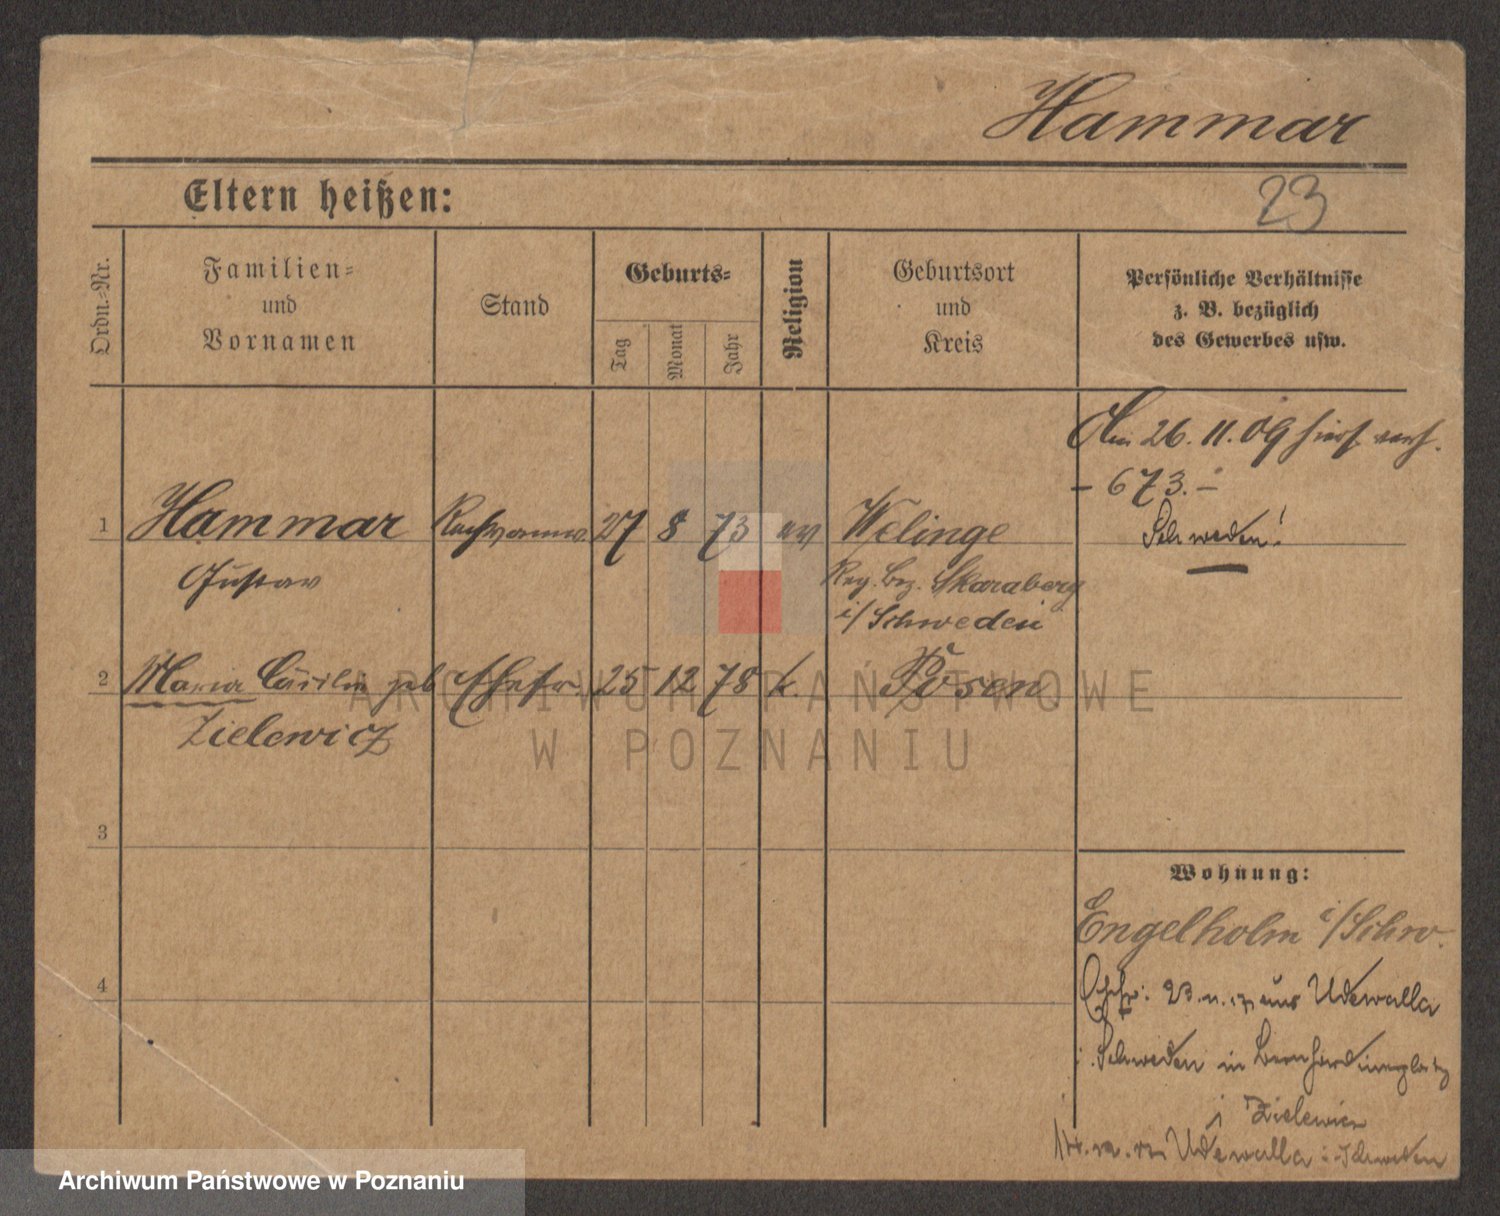 Hammar
Eltern heißen:
23
Ordn.-Nr.
Familien-
und
Vornamen
Stand
Geburts-
Tag
Monat
Jahr
Religion
Geburtsort
und
Kreis
Persönliche Verhältnisse
z. B. bezüglich
des Gewerbes usw.
Am 26. 11. 09 hier verh.
- 673. -
Schweden!
1 Hammar 27 8 73 ev Welinge
Gustav Reg. Bez. Skaraberg
i/Schweden
2 Maria Cäcilie geb Ehefr. 25 12 78 k. Posen
Zielewicz
3
4
Wohnung:
Engelholm i/Schw.
Ehefr: 23. aus Udewalla
i. Schweden in Bernhardinerplatz
Zielewicz
Udewalla i. Schweden
ARCHIWUM PAŃSTWOWE
W POZNANIU
Archiwum Państwowe w Poznaniu